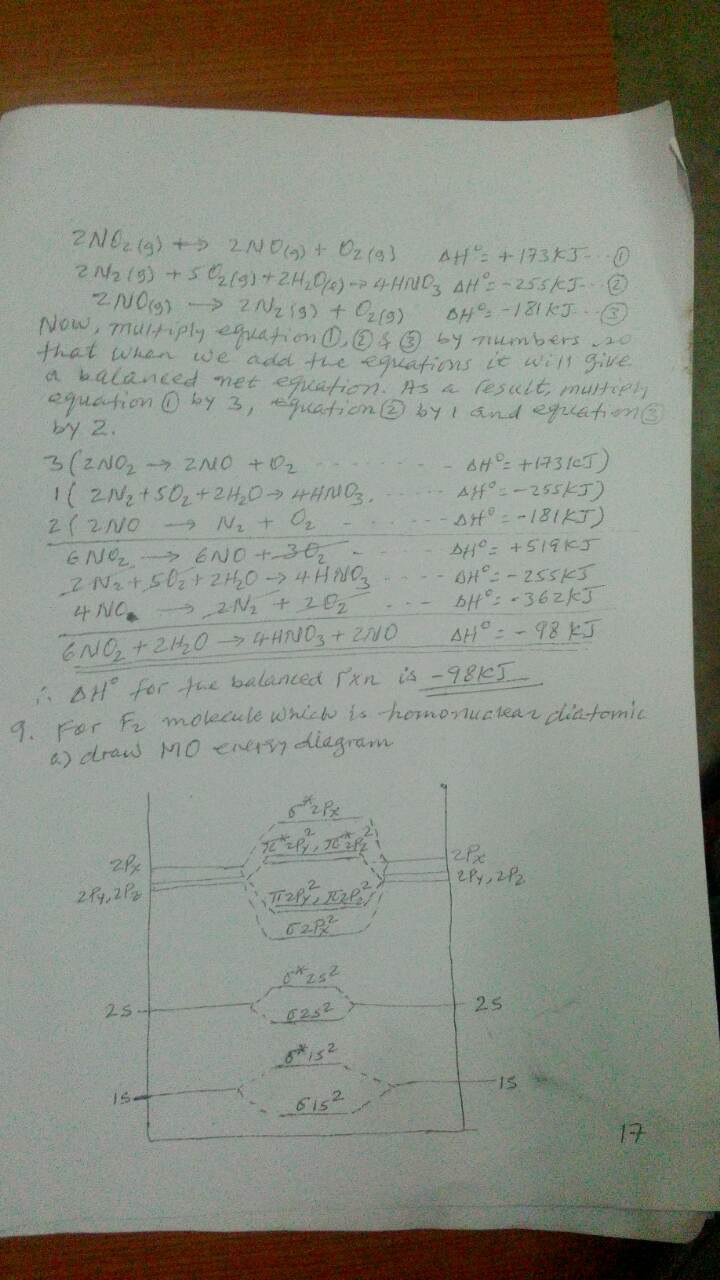 2NO₂(g) ↔ 2NO(g) + O₂(g) ΔH° = +173KJ ... ①
2N₂(g) + 5O₂(g) + 2H₂O(l) → 4HNO₃ ΔH° = -255KJ ... ②
2NO(g) → 2N₂(g) + O₂(g) ΔH° = -181KJ ... ③
Now, multiply equation ①, ② & ③ by numbers so
that when we add the equations it will give
a balanced net equation. As a result, multiply
equation ① by 3, equation ② by 1 and equation ③
by 2.
3(2NO₂ → 2NO + O₂ ........ ΔH° = +173KJ)
1(2N₂ + 5O₂ + 2H₂O → 4HNO₃ ..... ΔH° = -255KJ)
2(2NO → N₂ + O₂ ........ ΔH° = -181KJ)
6NO₂ → 6NO + 3O₂ .... ΔH° = +519KJ
2N₂ + 5O₂ + 2H₂O → 4HNO₃ ... ΔH° = -255KJ
4NO → 2N₂ + 2O₂ ... ΔH° = -362KJ
6NO₂ + 2H₂O → 4HNO₃ + 2NO ΔH° = -98KJ
∴ ΔH° for the balanced rxn is -98KJ
9. For F₂ molecule which is homonuclear diatomic
a) draw MO energy diagram
σ*2Px
π*2Py², π*2Pz²
2Px 2Px
2Py, 2Pz 2Py, 2Pz
π2Py², π2Pz²
σ2Px²
σ*2s²
2s 2s
σ2s²
σ*1s²
1s 1s
σ1s²
17